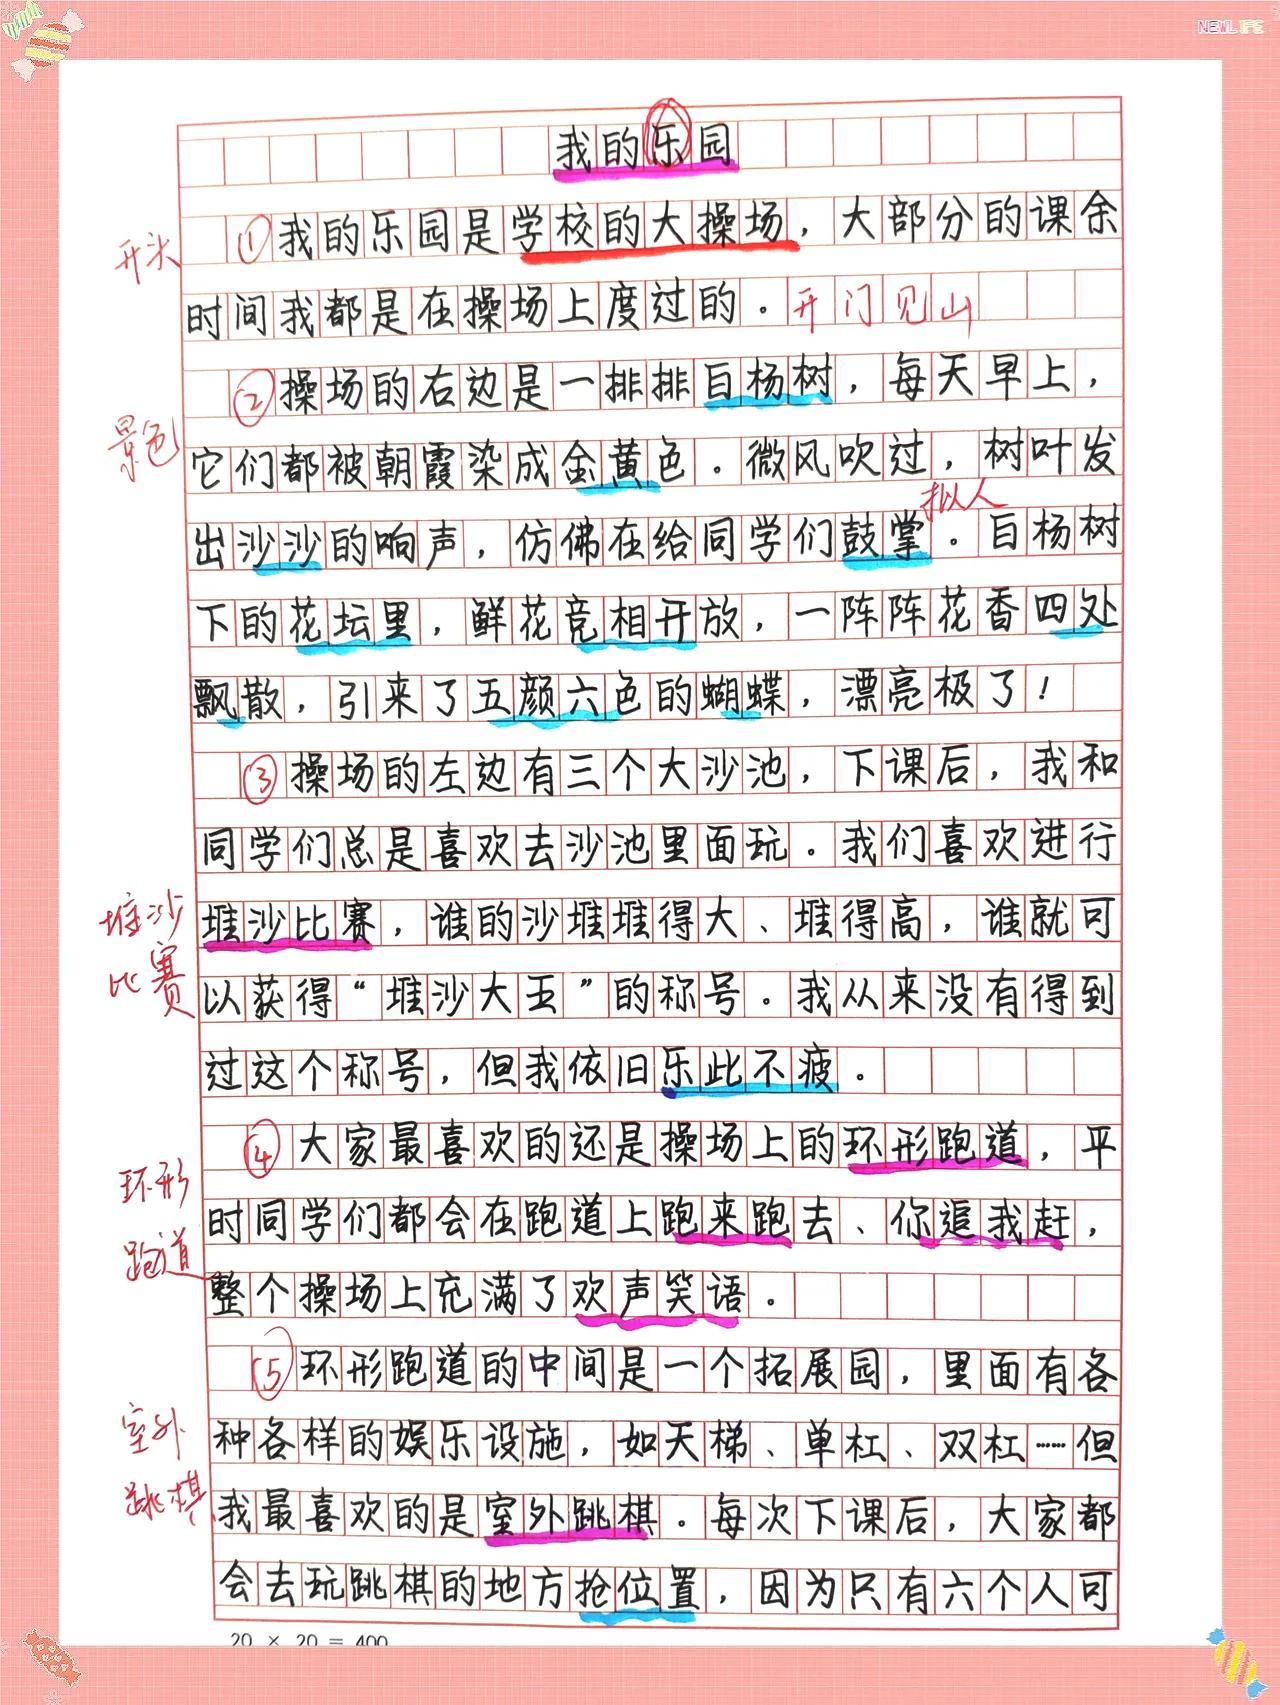 NEWLIFE
我的乐园
开头
①我的乐园是学校的大操场，大部分的课余
时间我都是在操场上度过的。开门见山
②操场的右边是一排排白杨树，每天早上，
景色
它们都被朝霞染成金黄色。微风吹过，树叶发
拟人
出沙沙的响声，仿佛在给同学们鼓掌。白杨树
下的花坛里，鲜花竞相开放，一阵阵花香四处
飘散，引来了五颜六色的蝴蝶，漂亮极了！
③操场的左边有三个大沙池，下课后，我和
同学们总是喜欢去沙池里面玩。我们喜欢进行
堆沙
比赛
堆沙比赛，谁的沙堆堆得大、堆得高，谁就可
以获得“堆沙大王”的称号。我从来没有得到
过这个称号，但我依旧乐此不疲。
④大家最喜欢的还是操场上的环形跑道，平
环形
跑道
时同学们都会在跑道上跑来跑去、你追我赶，
整个操场上充满了欢声笑语。
⑤环形跑道的中间是一个拓展园，里面有各
室外
跳棋
种各样的娱乐设施，如天梯、单杠、双杠……但
我最喜欢的是室外跳棋。每次下课后，大家都
会去玩跳棋的地方抢位置，因为只有六个人可
20 × 20 = 400